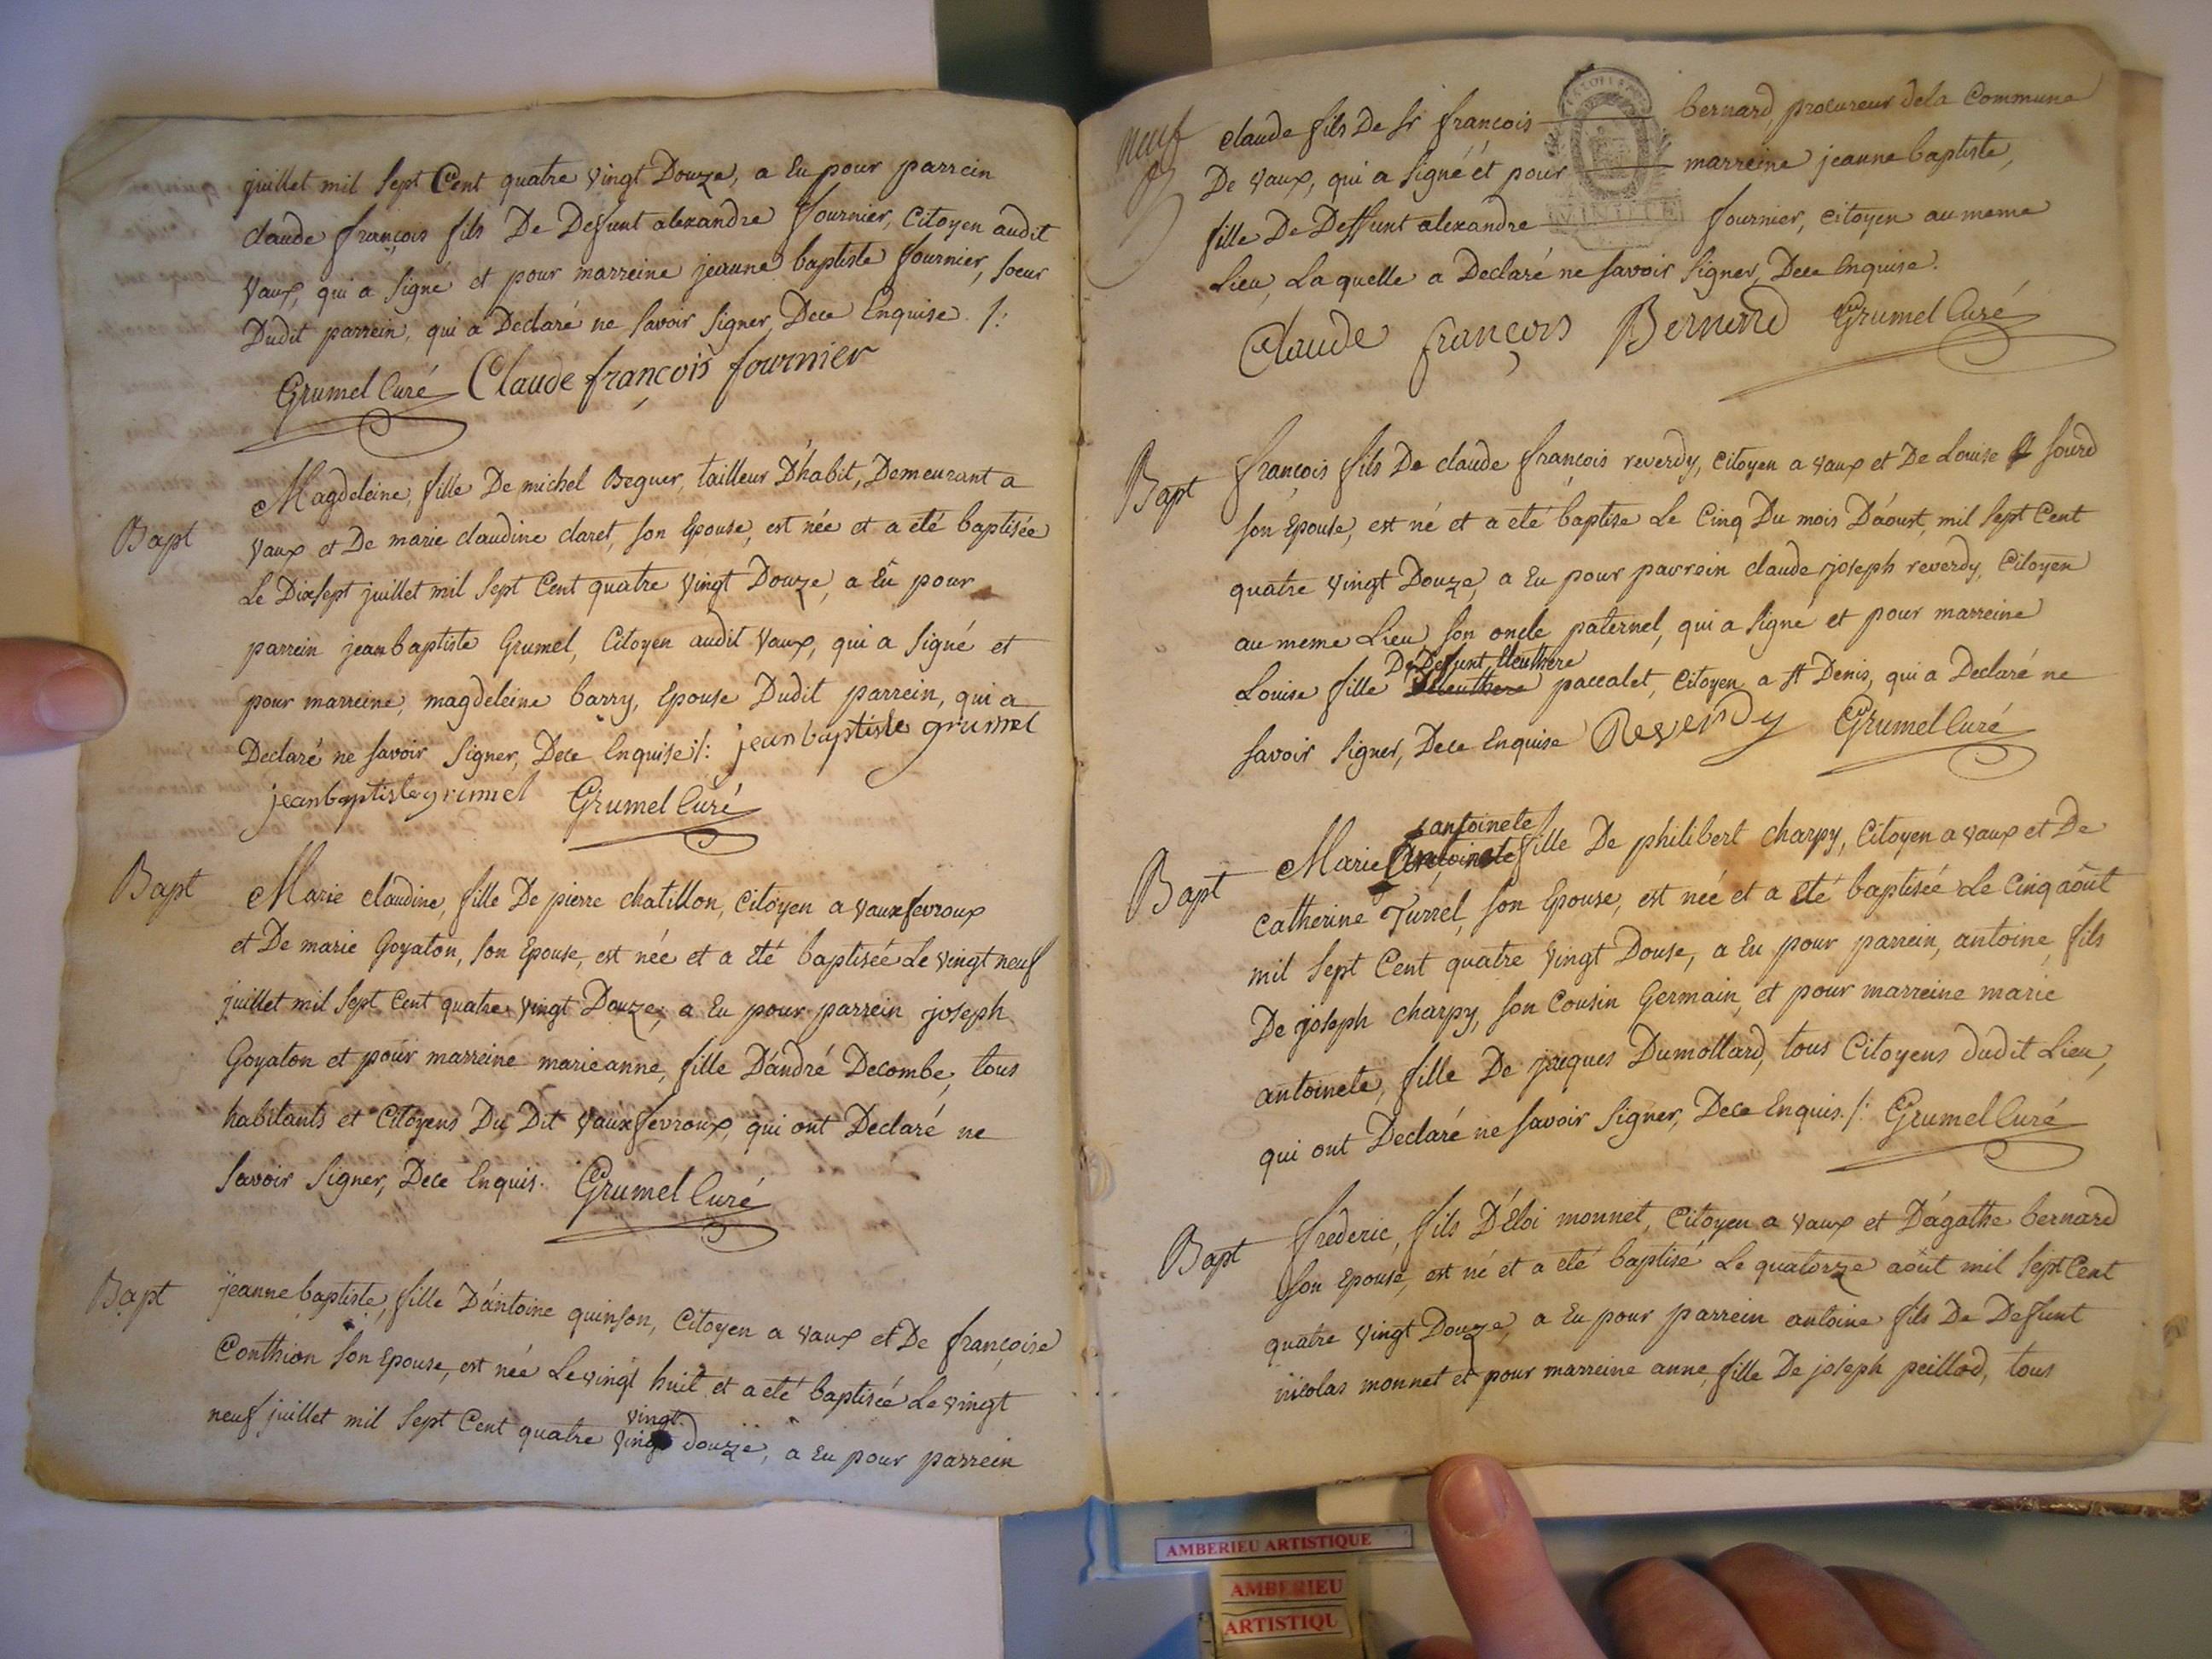 juillet mil sept Cent quatre vingt Douze, a Eu pour parrein
claude françois fils De Defunt alexandre fournier, Citoyen audit
Vaux, qui a signé et pour marreine jeanne baptiste fournier, soeur
Dudit parrein, qui a Declaré ne savoir signer, Dece Enquise /:
Grumel Curé Claude françois fournier
Bapt
Magdeleine, fille De michel Beguer, tailleur D'habit, Demeurant a
Vaux et De marie claudine claret, son Epouse, est née et a eté baptisée
Le Dixsept juillet mil sept Cent quatre vingt Douze, a Eu pour
parrein jean baptiste Grumel, Citoyen audit Vaux, qui a signé et
pour marreine, magdeleine barry, Epouse Dudit parrein, qui a
Declaré ne savoir signer, Dece Enquise /: jean baptiste grumel
jean baptiste grumel Grumel Curé
Bapt
Marie claudine, fille De pierre chatillon, Citoyen a vauxfevroux
et De marie Goyaton, son Epouse, est née et a eté baptisée Le vingt neuf
juillet mil sept Cent quatre vingt Douze, a Eu pour parrein joseph
Goyaton et pour marreine marieanne, fille D'andré Decombe, tous
habitants et Citoyens Du Dit vauxfevroux, qui ont Declaré ne
savoir signer, Dece Enquis. Grumel Curé
Bapt
jeanne baptiste, fille D'antoine quinson, Citoyen a vaux et De françoise
Conthion son Epouse, est née Le vingt huit et a eté baptisée Le vingt
vingt
neuf juillet mil sept Cent quatre vingt douze, a Eu pour parrein
neuf
claude fils De Sr françois bernard, procureur dela Commune
De vaux, qui a signé et pour marreine jeanne baptiste,
fille De Deffunt alexandre fournier, citoyen au meme
Lieu, Laquelle a Declaré ne savoir signer, Dece Enquise.
Claude françois Bernard Grumel Curé
Bapt
françois fils De claude françois reverdy, Citoyen a vaux et De Louise sourd
son Epouse, est né et a eté baptise Le Cinq Du mois D'aoust, mil sept Cent
quatre vingt Douze, a Eu pour parrein claude joseph reverdy, Citoyen
au meme Lieu, son oncle paternel, qui a signé et pour marreine
De Defunt Eleuthere
Louise fille paccalet, Citoyen a St Denis, qui a Declaré ne
savoir signer, Dece Enquise Reverdy Grumel Curé
Bapt
antoinete
Marie antoinete fille De philibert charpy, Citoyen a vaux et De
catherine Turrel, son Epouse, est née et a eté baptisée Le Cinq août
mil sept Cent quatre vingt Douse, a Eu pour parrein, antoine, fils
De joseph charpy, son Cousin Germain, et pour marreine marie
antoinete, fille De jacques Dumollard, tous Citoyens dudit Lieu,
qui ont Declaré ne savoir signer, Dece Enquis. /: Grumel Curé
Bapt
frederic, fils D'Eloi monnet, Citoyen a vaux et D'agathe bernard
son Epouse, est né et a eté baptisé Le quatorze août mil sept Cent
quatre vingt Douze, a Eu pour parrein antoine fils De Defunt
nicolas monnet et pour marreine anne, fille De joseph peillod, tous
AMBERIEU ARTISTIQUE
AMBERIEU
ARTISTIQU